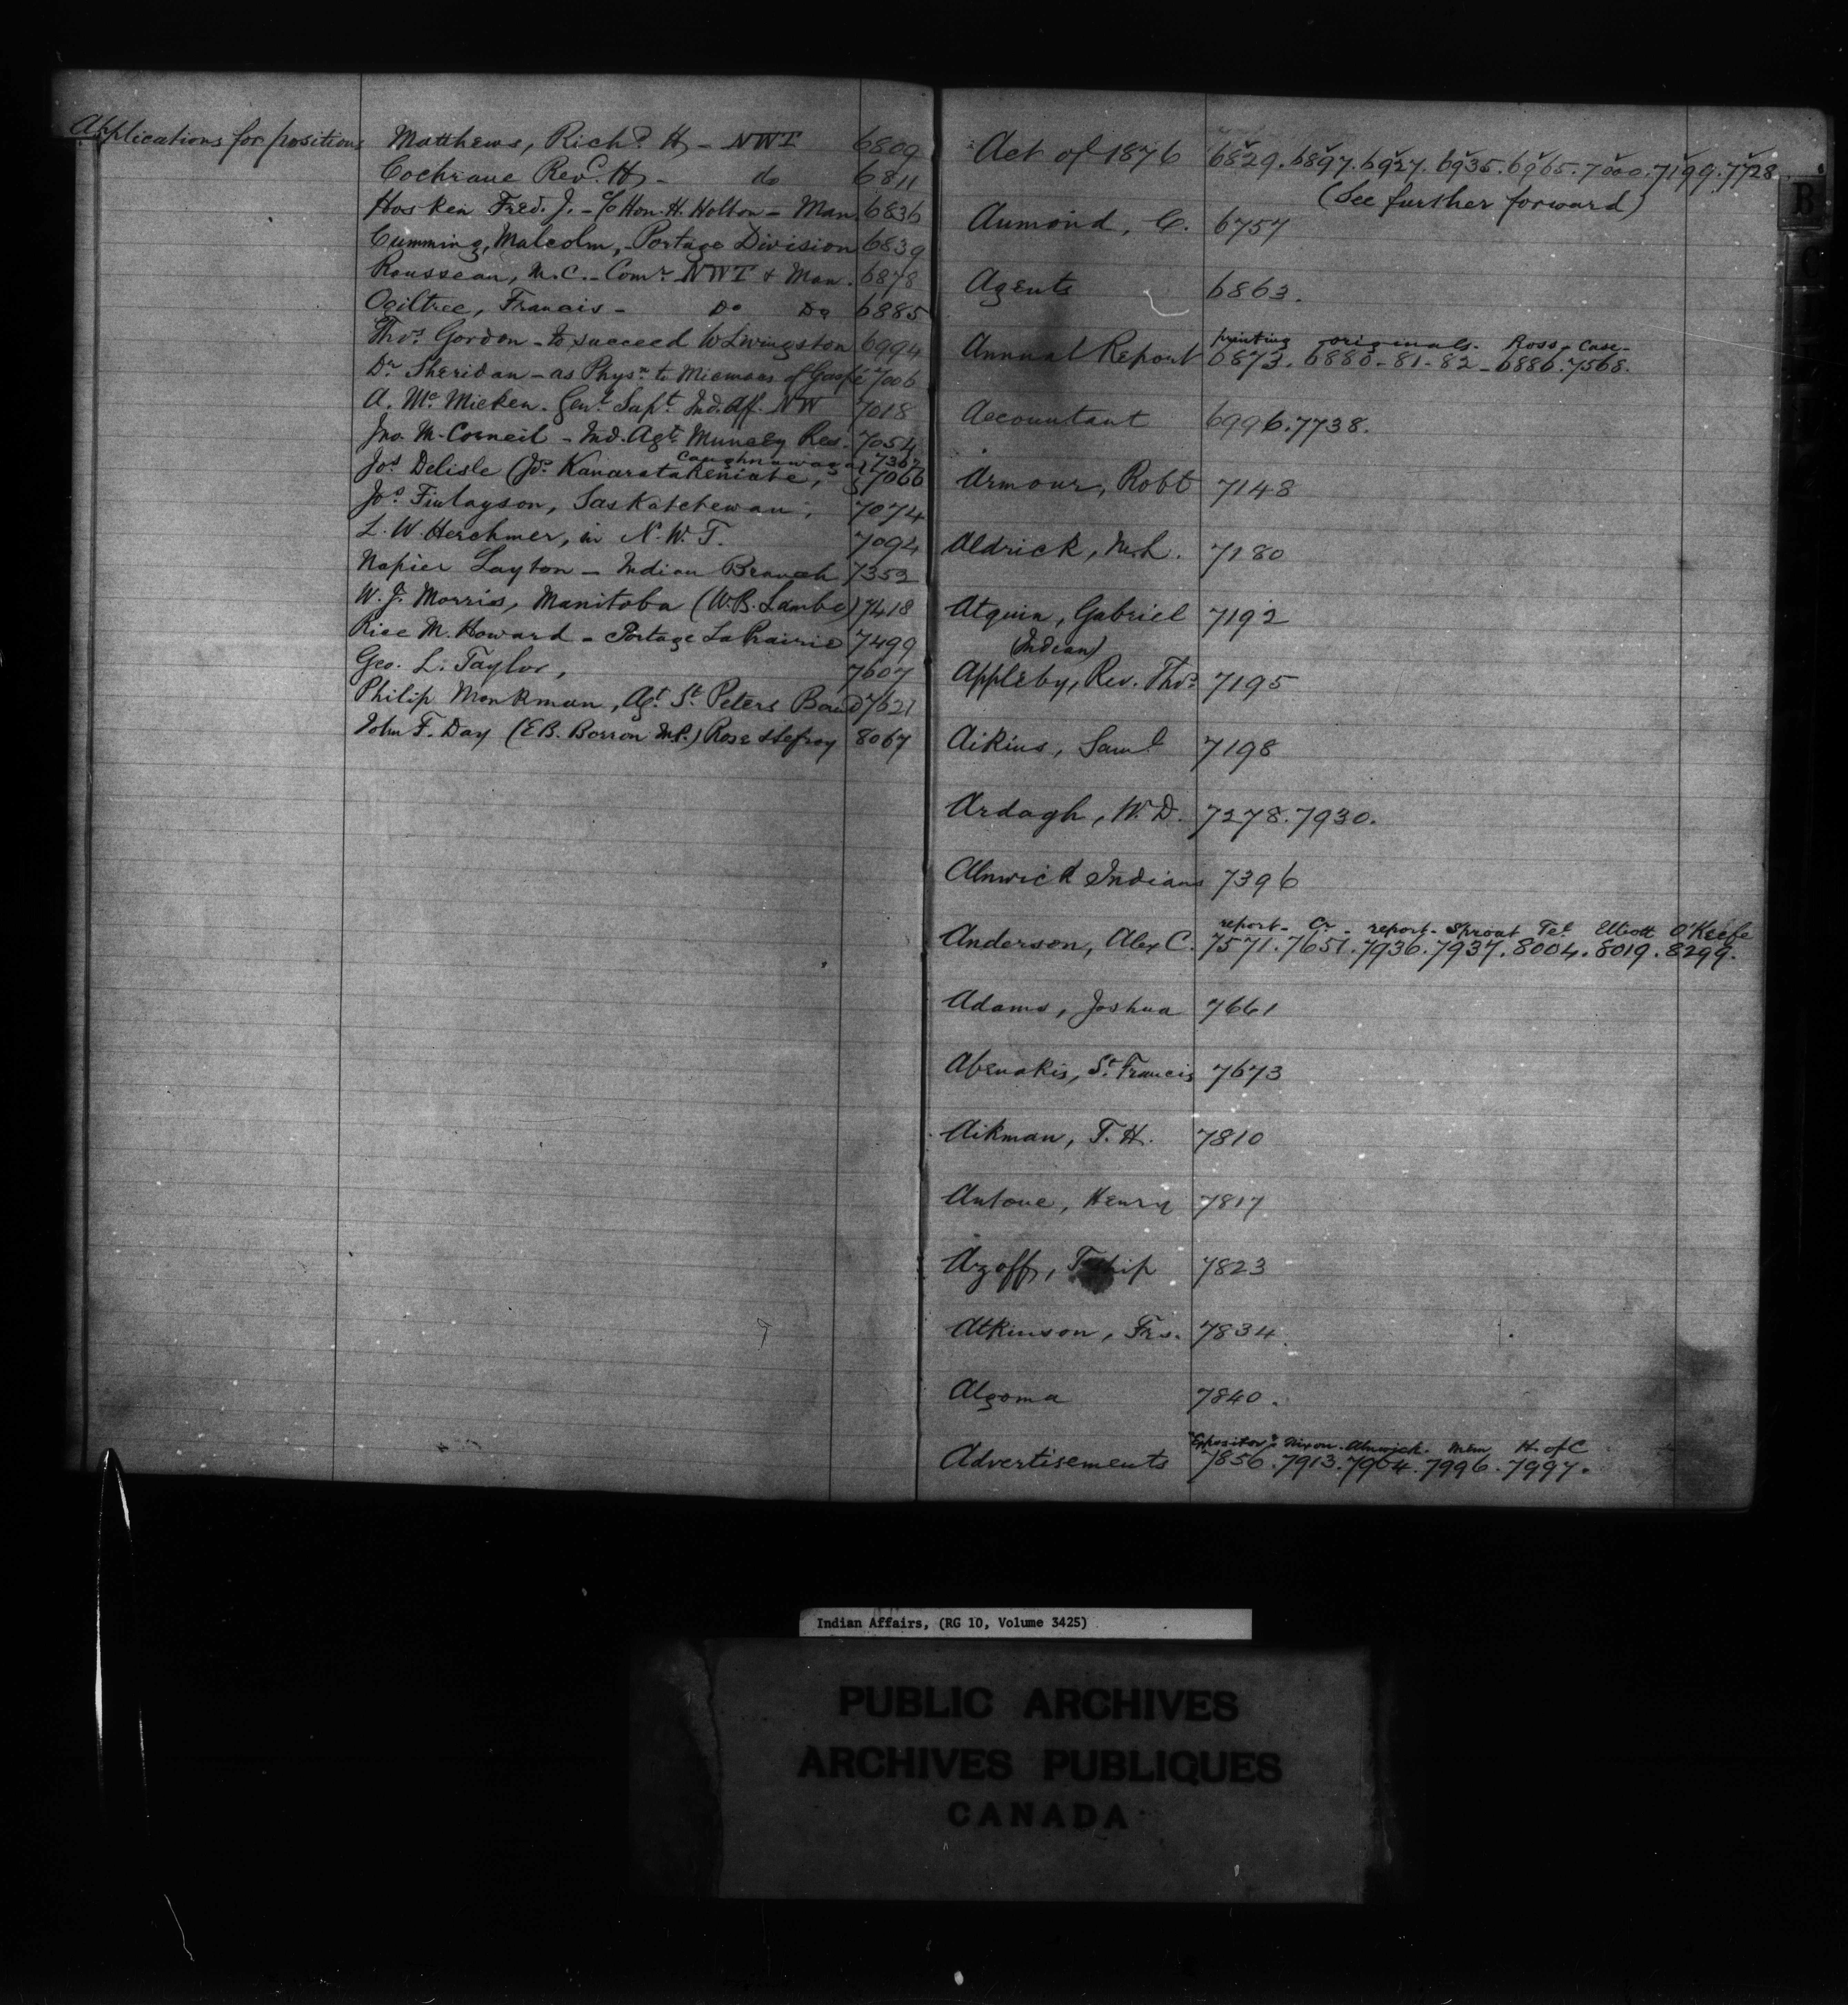 Applications for positions Matthews, Richd H - NWT 6809
Cochrane Revd. H - do 6811
Hosken Fred. J. - % Hon. H. Holton - Man. 6836
Cumming, Malcolm, - Portage Division 6839
Rousseau, M.C. - Comr NWT & Man. 6878
Ogiltree, Francis - Do Do 6885
Thos. Gordon - to succeed W Livingston 6994
Dr Sheridan - as Physn to Micmacs of Gaspé 7006
A. McMicken. Genl Supt. Ind. Aff. NW 7018
Jno. M. Corneil - Ind. Agt. Muncey Res. 7054
Caughnawaga 7362
Jos. Delisle (Jos. Kanaratakeniate, 7066
Jos. Finlayson, Saskatchewan, 7074
L. W. Herchmer, in N. W. T. 7094
Napier Layton - Indian Branch 7352
W. J. Morris, Manitoba (W.B. Lambe) 7418
Rice M. Howard - Portage La Prairie 7499
Geo. L. Taylor, 7607
Philip Monkman, Agt. St. Peters Band 7621
John F. Day (E.B. Borron M.P.) Rose & Lefroy 8067
Act of 1876 6829. 6897. 6927. 6935. 6965. 7000. 7199. 7728
(See further forward)
Aumond, C. 6757
Agents 6863.
printing originals. Ross - Case -
Annual Report 6873. 6880 - 81 - 82 - 6886. 7568.
Accountant 6996. 7738.
Armour, Robt 7148
Aldrick, M.L. 7180
Atquin, Gabriel 7192
(Indian)
Appleby, Rev. Thos. 7195
Aikins, Saml 7198
Ardagh, W. D. 7278. 7930.
Alnwick Indians 7396
report - Cr - report - Sproat Tel Elliott O'Keefe
Anderson, Alex C. 7571. 7651. 7936. 7937. 8004. 8019. 8299.
Adams, Joshua 7661
Abenakis, St. Francis 7673
Aikman, T. H. 7810
Antone, Henry 7817
Azoff, 7823
Atkinson, Frs. 7834
Algoma 7840.
"Expositor" Nixon. Alnwick. Mem H. of C
Advertisements 7856. 7913. 7964. 7996. 7997.
B
C
Indian Affairs, (RG 10, Volume 3425)
PUBLIC ARCHIVES
ARCHIVES PUBLIQUES
CANADA